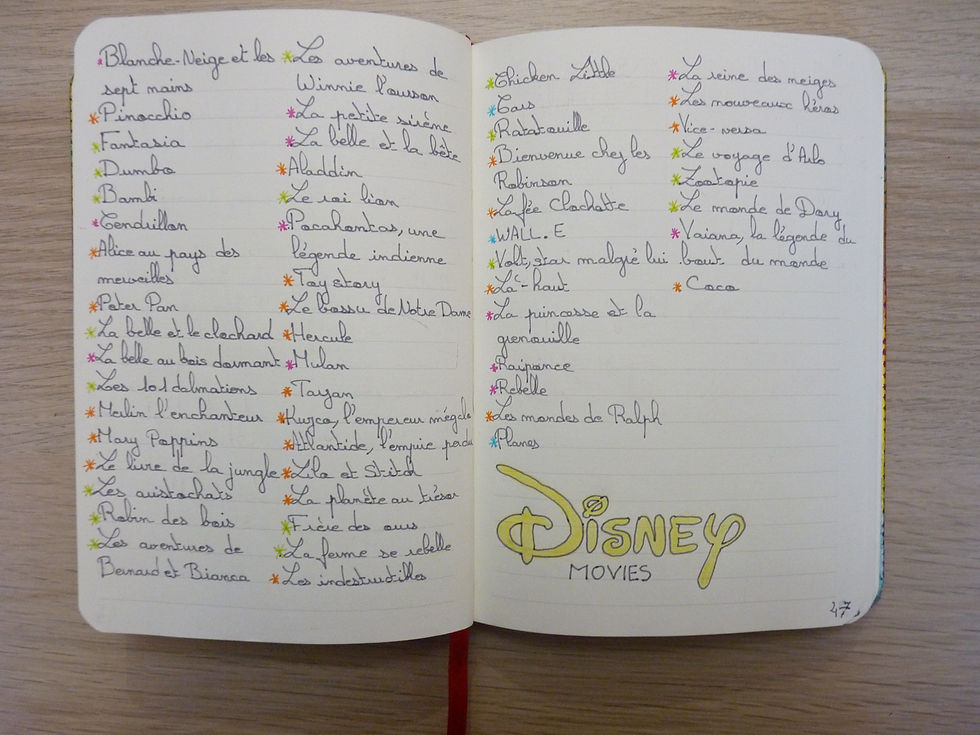 Blanche-Neige et les
sept nains
Pinocchio
Fantasia
Dumbo
Bambi
Cendrillon
Alice au pays des
merveilles
Peter Pan
La belle et le clochard
La belle au bois dormant
Les 101 dalmatiens
Merlin l'enchanteur
Mary Poppins
Le livre de la jungle
Les aristochats
Robin des bois
Les aventures de
Bernard et Bianca
Les aventures de
Winnie l'ourson
La petite sirène
La belle et la bête
Aladdin
Le roi lion
Pocahontas, une
légende indienne
Toy story
Le bossu de Notre Dame
Hercule
Mulan
Tarzan
Kuzco, l'empereur mégalo
Atlantide, l'empire perdu
Lilo et Stitch
La planète au trésor
Frère des ours
La ferme se rebelle
Les indestructibles
Chicken Little
Cars
Ratatouille
Bienvenue chez les
Robinson
La fée Clochette
WALL.E
Volt, star malgré lui
Là-haut
La princesse et la
grenouille
Raiponce
Rebelle
Les mondes de Ralph
Planes
La reine des neiges
Les nouveaux héros
Vice-versa
Le voyage d'Arlo
Zootopie
Le monde de Dory
Vaiana, la légende du
bout du monde
Coco
DISNEY
MOVIES
47